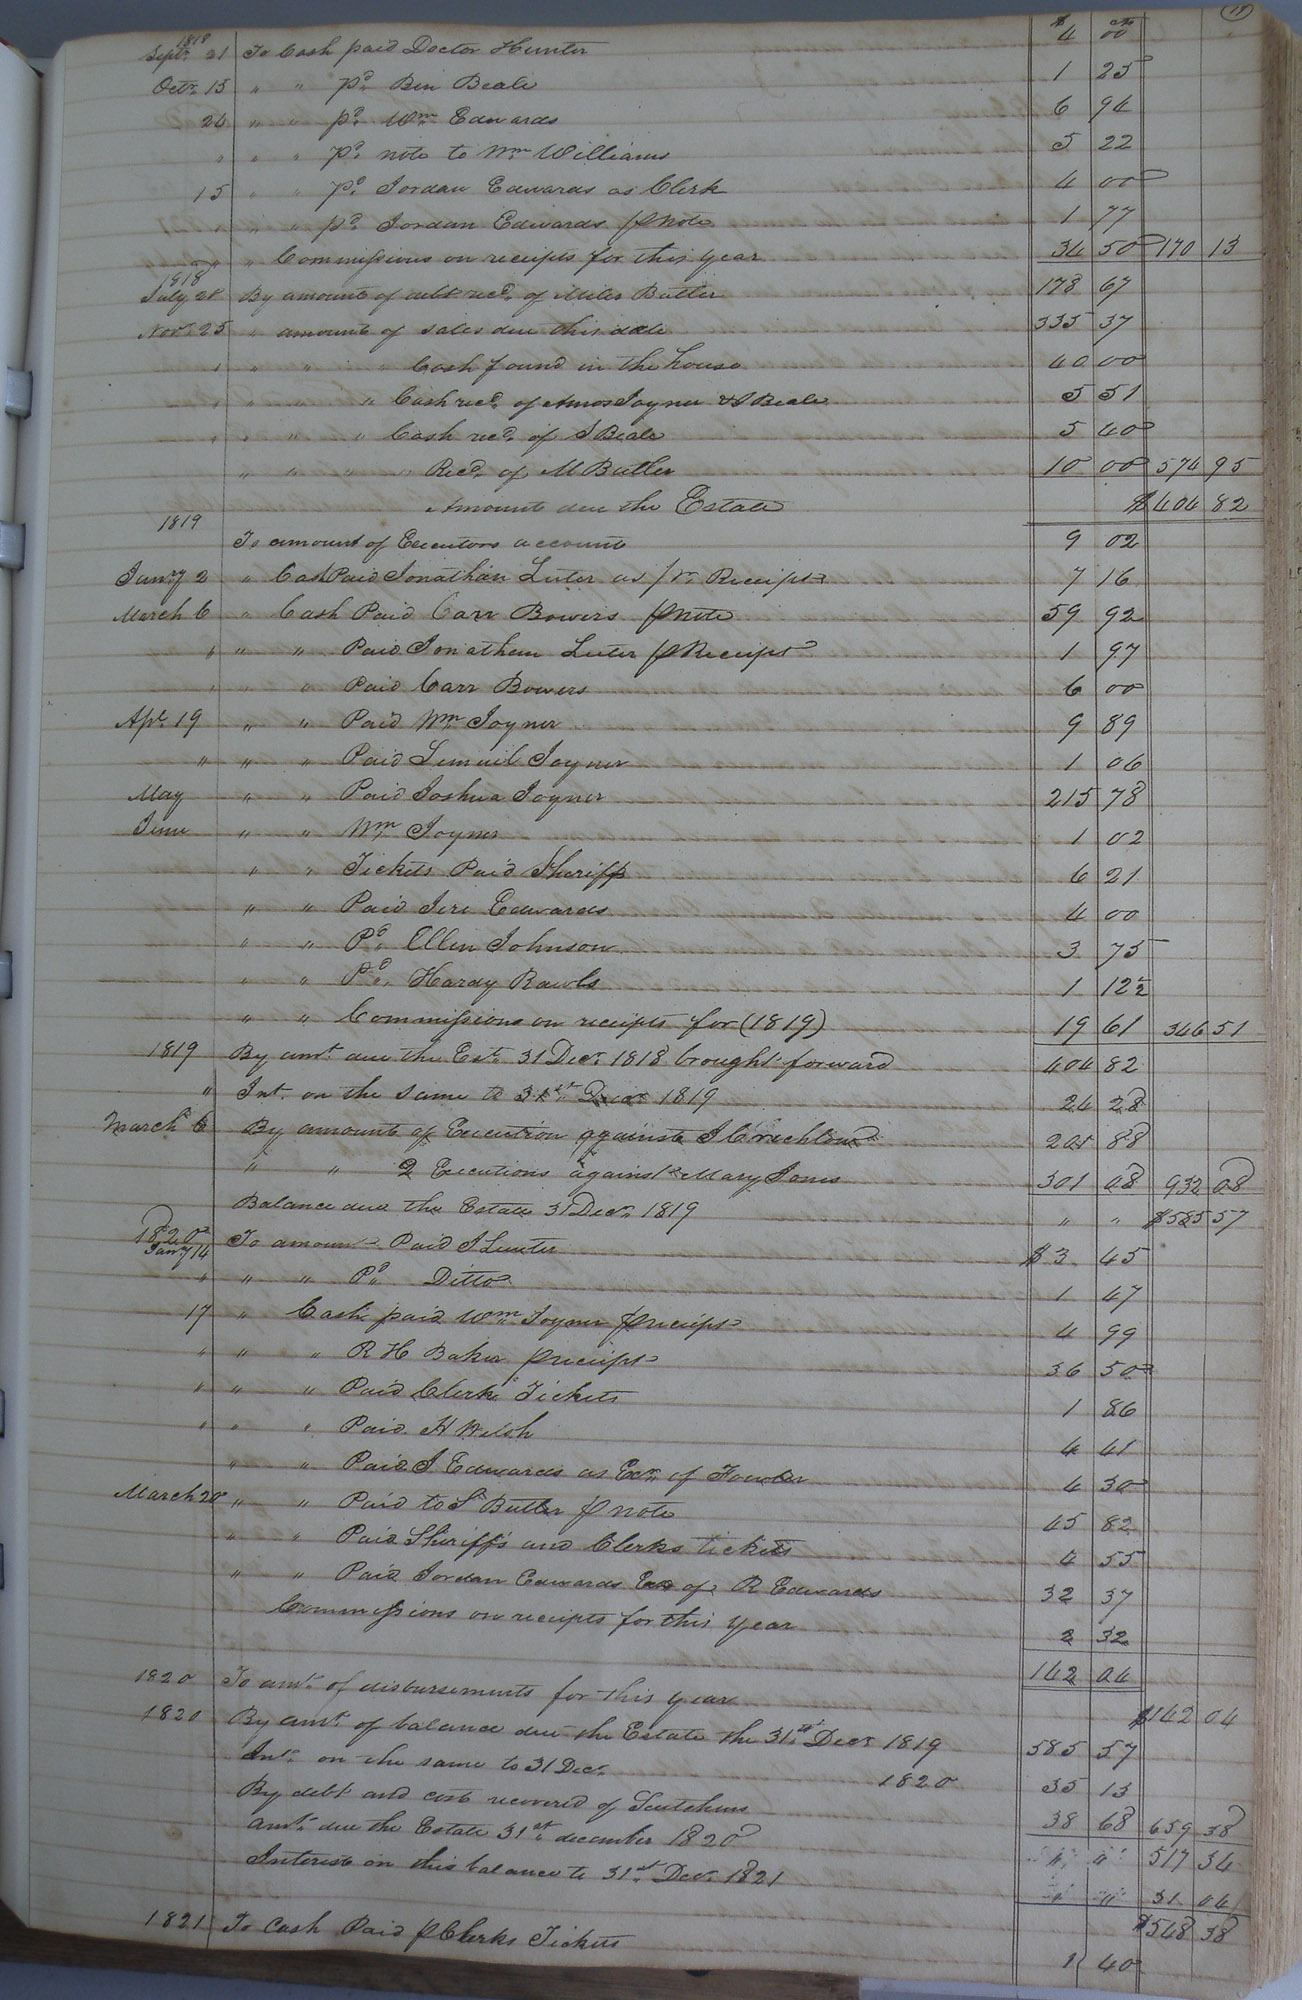 19
$ cts
1818 Septr. 21 To Cash paid Doctor Hunter 4 00
Octr. 15 " " pd. Ben Beale 1 25
24 " " pd. Wm Edwards 6 94
" " " pd. note to Wm Williams 5 22
15 " " pd. Jordan Edwards as Clerk 4 00
" " " pd. Jordan Edwards p note 1 77
" " Commissions on receipts for this year 34 50 170 13
1818 July 28 By amount of debt recd. of Miles Butler 178 67
Novr. 25 " amount of sales due this date 335 37
" " " " Cash found in the house 40 00
" " " " Cash recd. of Amos Joyner & S Beale 5 51
" " " " Cash recd. of S Beale 5 40
" " " " Recd. of M Butler 10 00 574 95
Amount due the Estate $404 82
1819 To amount of Executors account 9 02
Jany 2 " Cash Paid Jonathan Luter as pr. Receipt 7 16
March 6 " Cash Paid Carr Bowers p note 59 92
" " " Paid Jonathan Luter p Receipt 1 97
" " " Paid Carr Bowers 6 00
Apl. 19 " " Paid Wm Joyner 9 89
" " " Paid Lemuel Joyner 1 06
May " " Paid Joshua Joyner 215 78
June " " Wm Joyner 1 02
" " Tickets Paid Sheriff 6 21
" " Paid Jere Edwards 4 00
" " Pd. Ellen Johnson 3 75
" " Pd. Hardy Rawls 1 12½
" " Commissions on receipts for (1819) 19 61 346 51
1819 By amt. due the Est. 31 Decr. 1818 brought forward 404 82
" Int. on the same to 31st. Decr 1819 24 28
March 6 By amount of Execution against J Crichlow 201 88
" " 2 Executions against Mary Jones 301 08 932 08
Balance due the Estate 31 Decr. 1819 " " $585 57
1820 Jany 14 To amount Paid J Lunter $3 45
" " " Pd. Ditto 1 47
17 " Cash paid Wm Joyner p receipt 4 99
" " " R H Baker p receipt 36 50
" " " Paid Clerks Tickets 1 86
" " " Paid H Welsh 4 41
" " Paid J Edwards as Exr. of Fowler 4 30
March 20 " " Paid to S Butler p note 45 82
" " Paid Sheriffs and Clerks tickets 4 55
" " Paid Jordan Edwards Exr of R Edwards 32 37
Commissions on receipts for this year 2 32
142 04
1820 To amt. of disbursements for this year $142 04
1820 By amt. of balance due the Estate the 31st. Decr 1819 585 57
Int. on the same to 31 Decr. 1820 35 13
By debt and cost recovered of Scutchins 38 68 659 38
amt. due the Estate 31st. december 1820 " " 517 34
Interest on this balance to 31st. Decr. 1821 " " 31 04
$548 38
1821 To Cash Paid p Clerks Tickets 1 40